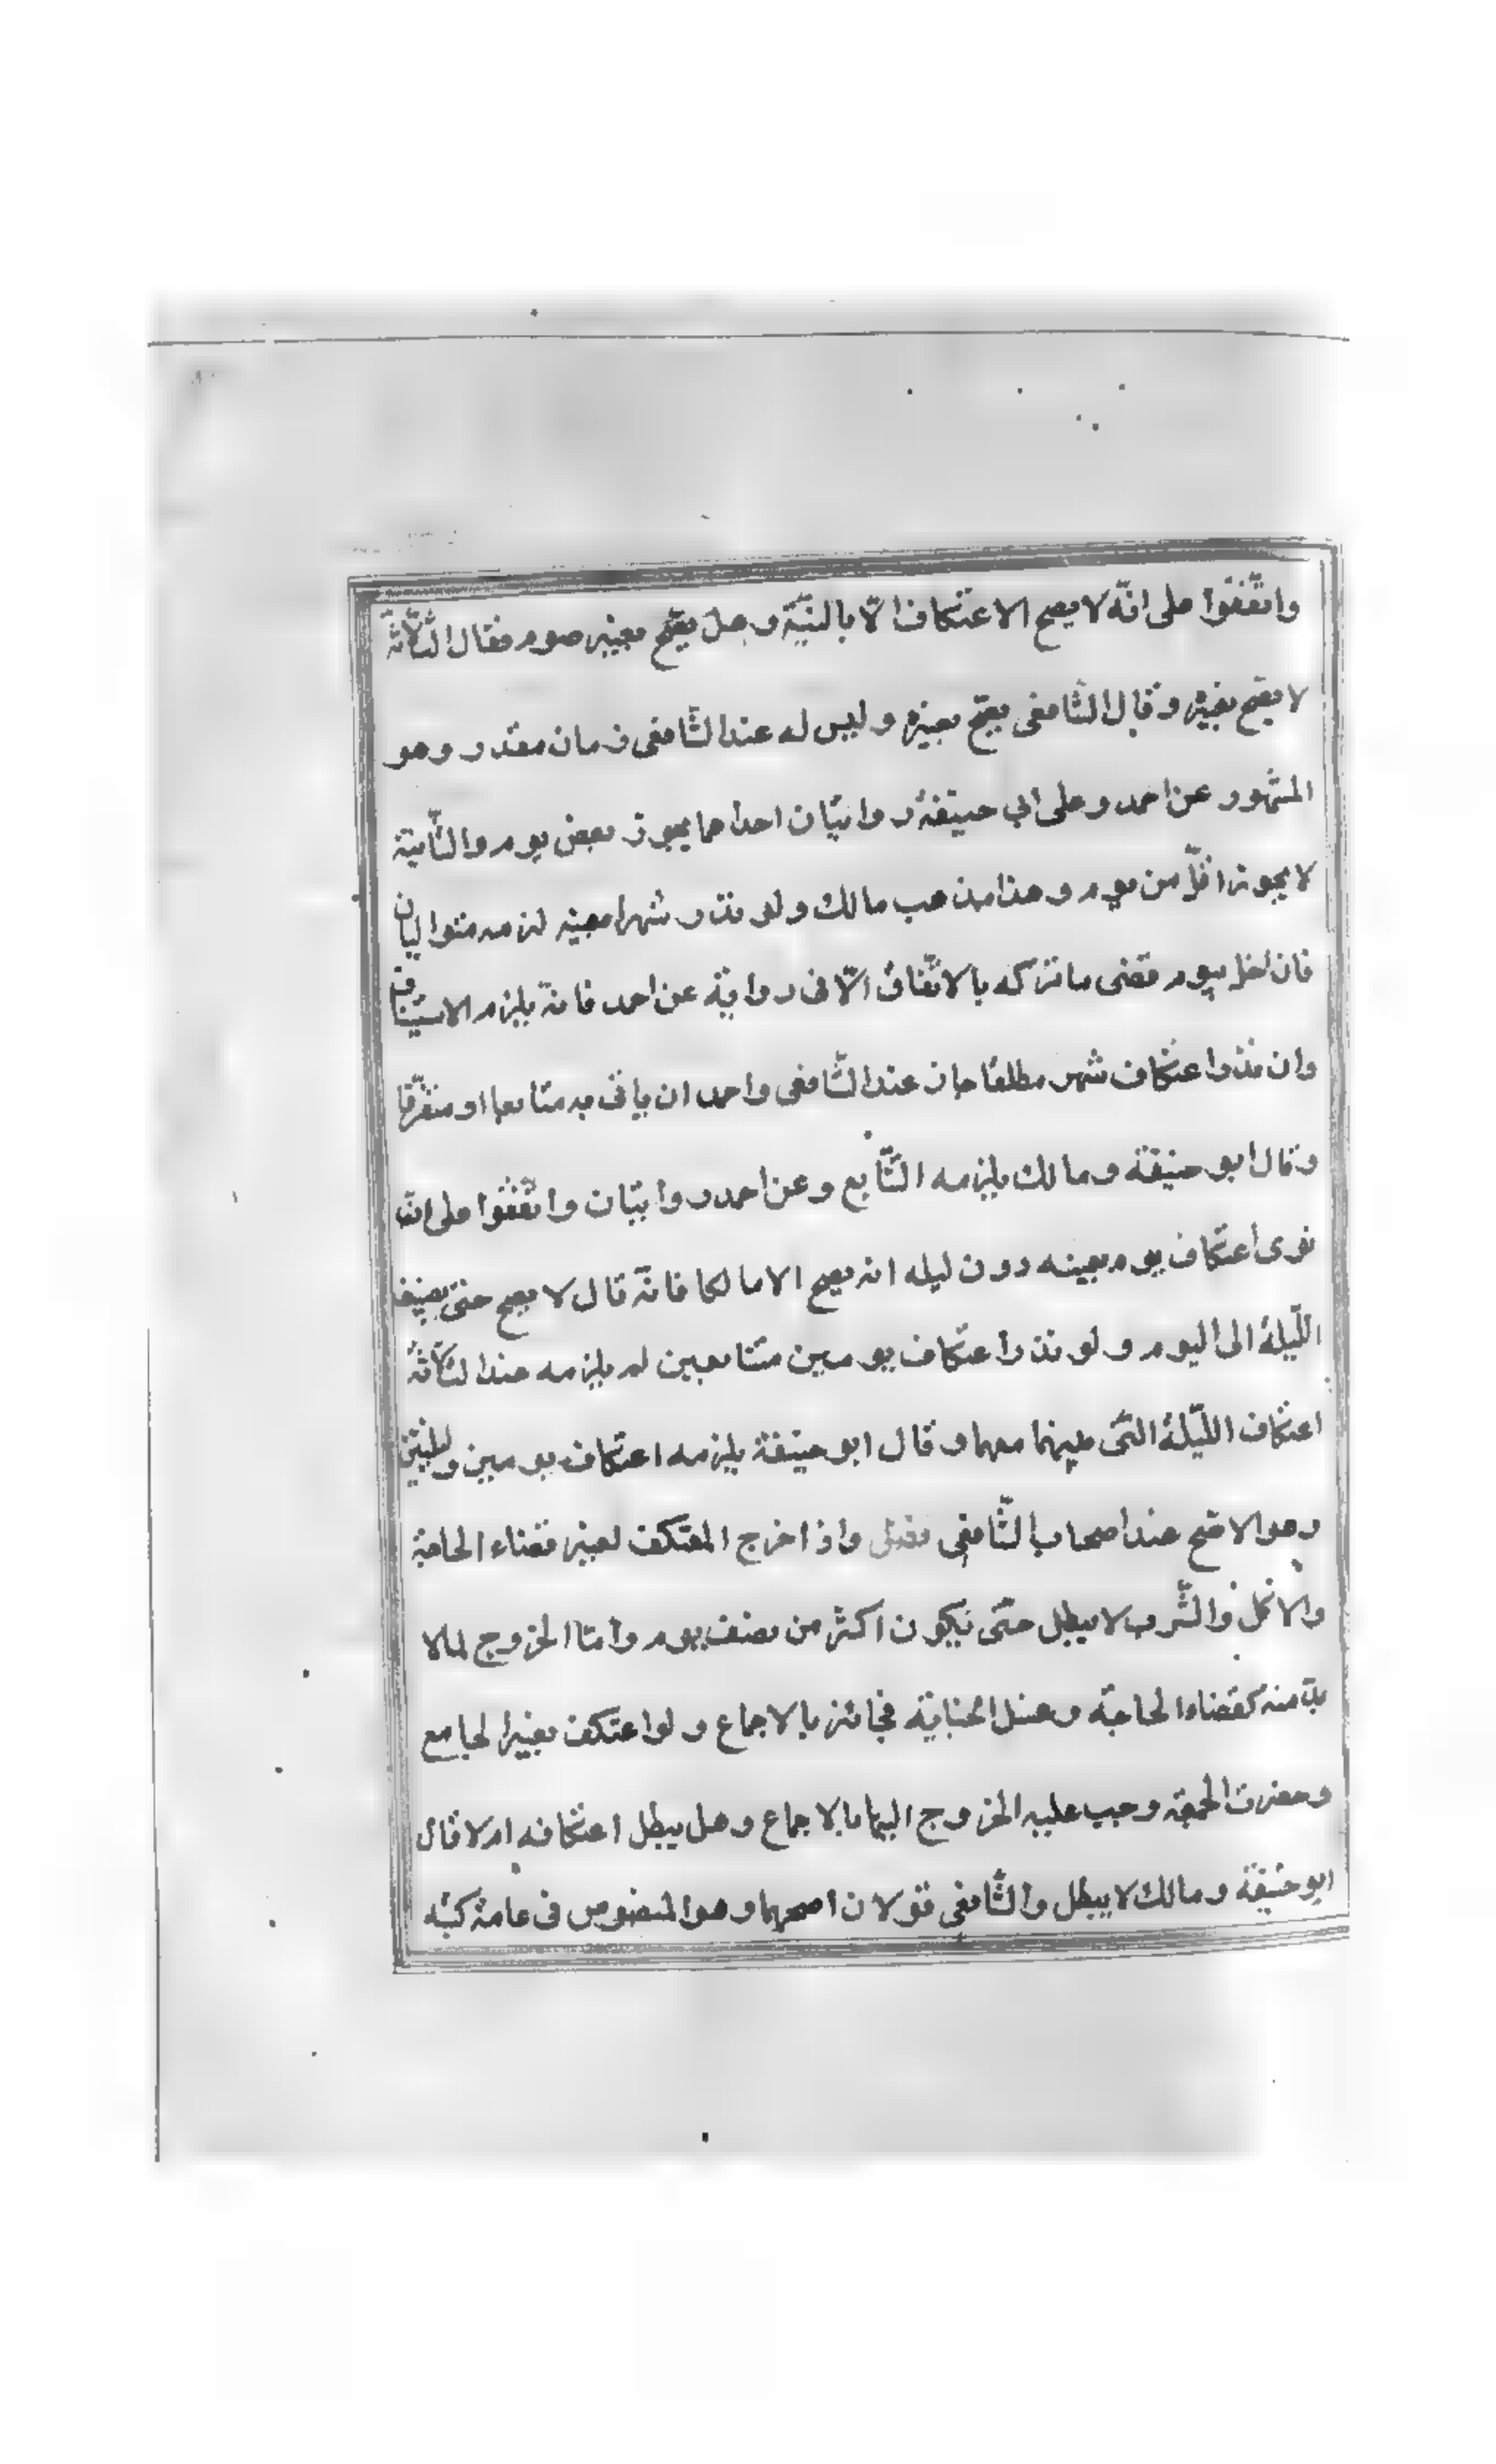 واتّفقوا على انّه لا يصح الاعتكاف الّا بالنيّة وهل يصّح بغير صوم فقال الثّلاثة
لا يصّح بغيره وقال الشّافعى يصّح بغيره وليس له عند الشّافعى زمان مقدر وهو
المشهور عن احمد وعلى ابي حنيفة روايتان احداهما يجوز بعض يوم والثّانية
لا يجوز اقلّ من يوم وهذا مذهب مالك ولو نذر شهرا بعينه لزمه متواليان
فان اخل بيوم قضى ما تركه بالاتّفاق الّا فى رواية عن احمد فانة يلزم الاستيناف
وان نذر اعتكاف شهر مطلقا جاز عند الشّافعى واحمد ان ياتى به متتابعا او متفرّقا
وقال ابو حنيفة ومالك يلزمه التّتابع وعن احمد روايتان واتّفقوا على انه
نوى اعتكاف يوم بعينه دون ليله انه يصح الا مالكا فانّه قال لا يصح حتى يضيف
اللّيلة الى اليوم ولو نذر اعتكاف يومين متتابعين لم يلزمه عند الثّلاثة
اعتكاف اللّيلة الّتى بينهما معهما وقال ابو حنيفة يلزمه اعتكاف يومين وليلتين
وهو الاصّح عند اصحاب الشّافعى فصل واذا خرج المعتكف لغير قضاء الحاجة
والاكل والشّرب لا يبطل حتّى يكون اكثر من نصف يوم وامّا الخروج لما لا
بدّ منه كقضاء الحاجة وغسل الجنابة فجائز بالاجماع ولو اعتكف بغير الجامع
وحضرت الجمعة وجب عليه الخروج اليها بالاجماع وهل يبطل اعتكافه ام لا قال
ابو حنيفة ومالك لا يبطل والشّافعى قولان اصحهما وهو المنصوص فى عامة كتبه